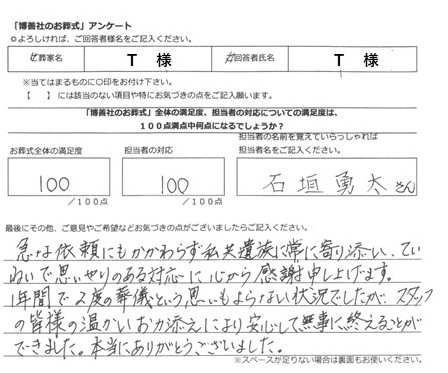 「博善社のお葬式」アンケート
◎よろしければ、ご回答者様名をご記入ください。
ご葬家名 T 様 ご回答者氏名 T 様
※当てはまるものに○印をお付け下さい。
【 】には該当のない項目や特にお気づきの点をご記入願います。
「博善社のお葬式」全体の満足度、担当者の対応についての満足度は、
100点満点中何点になるでしょうか?
お葬式全体の満足度
100
/100点
担当者の対応
100
/100点
担当者の名前を覚えていらっしゃれば
担当者名をご記入ください。
石垣勇太さん
最後にその他、ご意見やご希望などお気づきの点がございましたらご記入ください。
急な依頼にもかかわらず私共遺族に常に寄り添い、てい
ねいで思いやりのある対応に心から感謝申し上げます。
1年間で2度の葬儀という思いもよらない状況でしたが、スタッフ
の皆様の温かいお力添えにより安心して無事に終えることが
できました。本当にありがとうございました。
※スペースが足りない場合は裏面もお使いください。